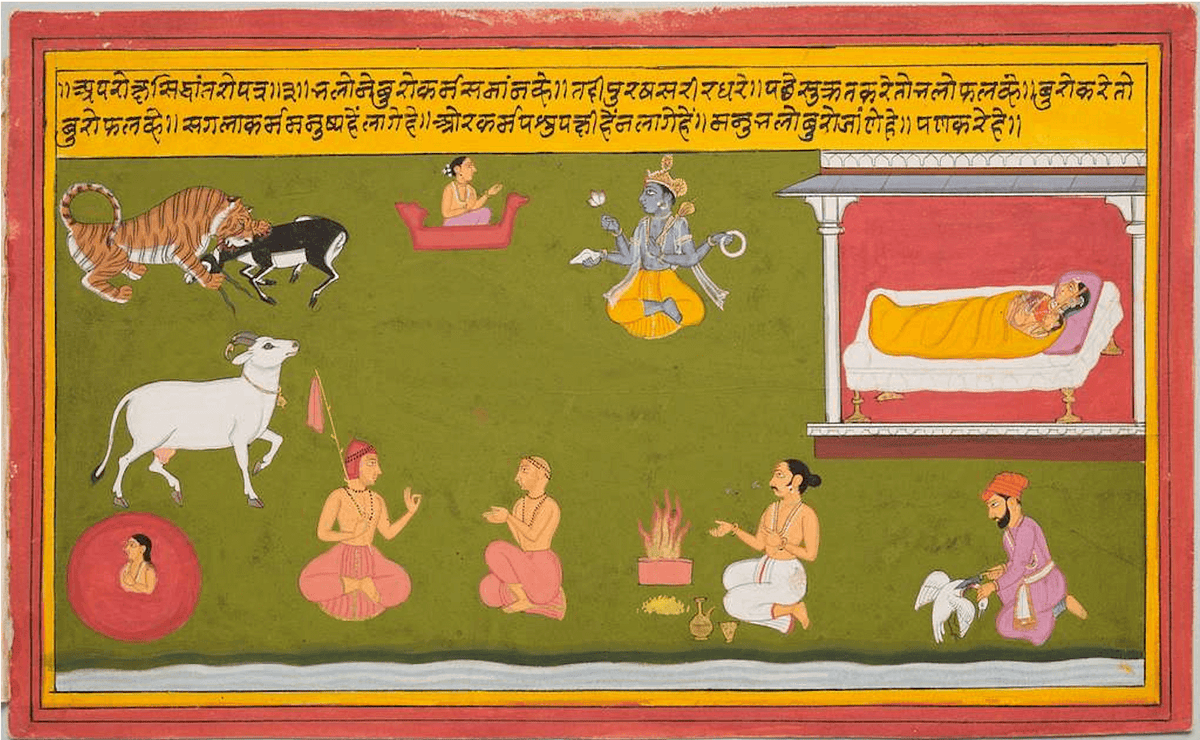 ॥अपरोक्षसिद्धांतरोपत्र॥३॥भलोनेबुरोकर्मसमांनव्हे॥तदीपुरषसरीरधरे॥पछेसुक्रतकरेतोभलोफलव्हे॥बुरोकरेतो
बुरोफलव्हे॥सगलाकर्ममनुष्यहेंलागेहे॥ओरकर्मपशुपक्षीहेंनलागेहें॥मनुभलोबुरोजांणेहे॥पणकरेहे॥